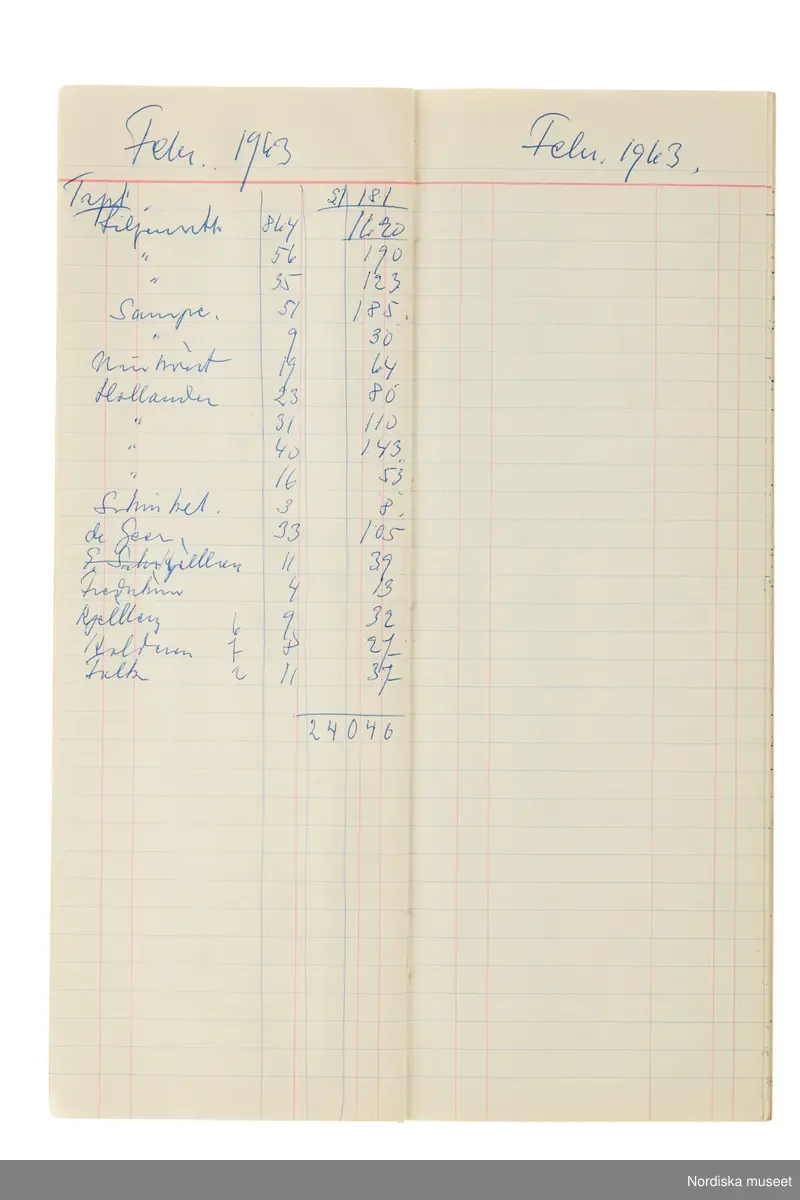 Febr. 1963
Febr. 1963.
Tapt.
21 181
Liljewalchs 864 1620
" 56 190
" 35 123
Sampe. 51 185.
" 9 30
19 64
Hollander 23 80
" 31 110
" 40 143
" 16 53
Schinkel. 3 8.
de Geer 33 105
11 39
4 13
Kjellberg 6 9 32
7 8 27
Falk 2 11 37
24046
Nordiska museet